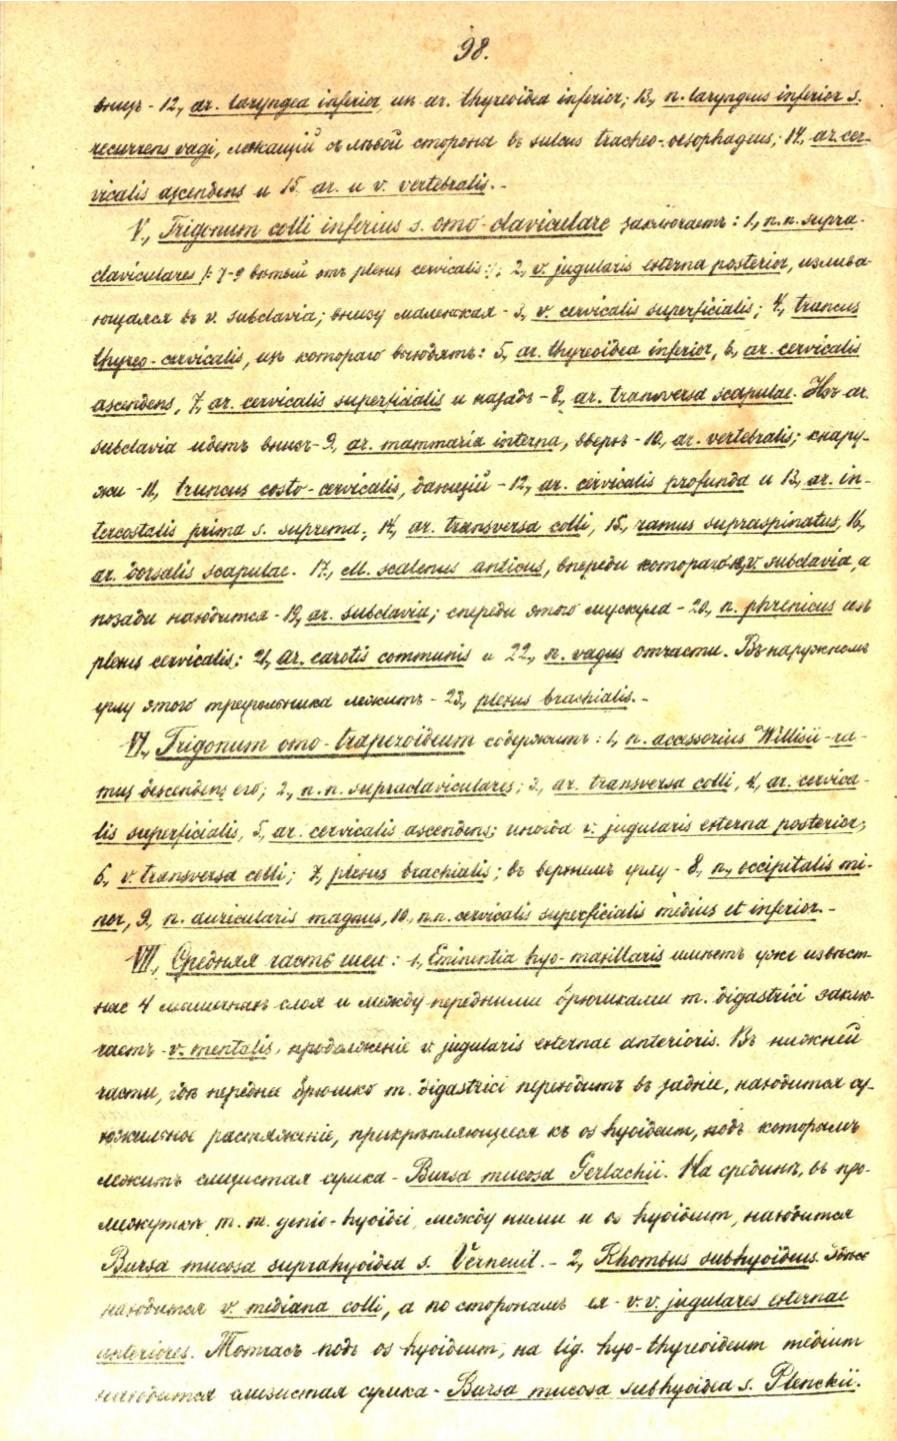 98.
внизъ - 12, ar. laryngea inferior изъ ar. thyreoidea inferior; 13, n. laryngeus inferior s.
recurrens vagi, лежащій съ лѣвой стороны въ sulcus tracheo-oesophageus; 14, ar. cer-
vicalis ascendens и 15 ar. и v. vertebralis. -
V, Trigonum colli inferius s. omo-claviculare заключаетъ: 1, n.n. supra-
claviculares /: 7-9 вѣтвей отъ plexus cervicalis :/; 2, v. jugularis externa posterior, излива-
ющаяся въ v. subclavia; внизу маленькая - 3, v. cervicalis superficialis; 4, truncus
thyreo-cervicalis, изъ котораго выходятъ: 5, ar. thyreoidea inferior, 6, ar. cervicalis
ascendens, 7, ar. cervicalis superficialis и назадъ - 8, ar. transversa scapulae. Изъ ar.
subclavia идетъ внизъ - 9, ar. mammaria interna, вверхъ - 10, ar. vertebralis; кнару-
жи - 11, truncus costo-cervicalis, дающій - 12, ar. cervicalis profunda и 13, ar. in-
tercostalis prima s. suprema; 14, ar. transversa colli, 15, ramus supraspinatus, 16,
ar. dorsalis scapulae. 17, M. scalenus anticus, впереди котораго 18, v. subclavia, а
позади находится - 19, ar. subclavia; спереди этого мускула - 20, n. phrenicus изъ
plexus cervicalis; 21, ar. carotis communis и 22, n. vagus отчасти. Въ наружномъ
углу этого треугольника лежитъ - 23, plexus brachialis. -
VI, Trigonum omo-trapezoideum содержитъ: 1, n. accessorius Willisii - ra-
mus descendens его; 2, n.n. supraclaviculares; 3, ar. transversa colli, 4, ar. cervica-
lis superficialis, 5, ar. cervicalis ascendens; иногда v. jugularis externa posterior;
6, v. transversa colli; 7, plexus brachialis; въ верхнемъ углу - 8, n. occipitalis mi-
nor, 9, n. auricularis magnus, 10, n.n. cervicalis superficialis medius et inferior. -
VII, Средняя часть шеи: 1, Eminentia hyo-maxillaris имѣетъ уже извѣст-
ные 4 мышечныхъ слоя и между передними брюшками m. digastrici заклю-
чаетъ - v. mentalis, продолженіе v. jugularis externae anterioris. Въ нижней
части, гдѣ переднее брюшко m. digastrici переходитъ въ заднее, находится су-
хожильное растяженіе, прикрѣпляющееся къ os hyoideum, подъ которымъ
лежитъ слизистая сумка - Bursa mucosa Gerlachii. На срединѣ, въ про-
межуткѣ m. m. genio-hyoidei, между ними и os hyoideum, находится
Bursa mucosa suprahyoidea s. Verneuil. - 2, Rhombus subhyoideus. Здѣсь
находится v. mediana colli, а по сторонамъ ея - v.v. jugulares externae
anteriores. Тотчасъ подъ os hyoideum, на lig. hyo-thyreoideum medium
находится слизистая сумка - Bursa mucosa subhyoidea s. Plenckii.